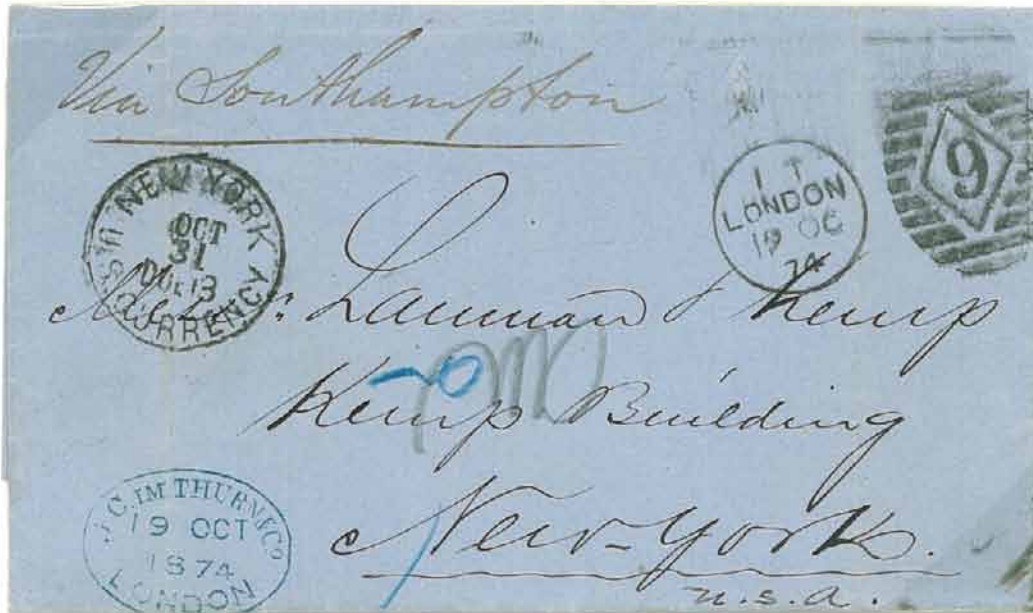 Via Southampton
NEW YORK
OCT
31
DUE 13
U.S. CURRENCY
1 T
LONDON
19 OC
74
9
Messrs. Lanman & Kemp
Kemp Building
New-York.
U.S.A.
J. C. IM THURN & Co
19 OCT
1874
LONDON